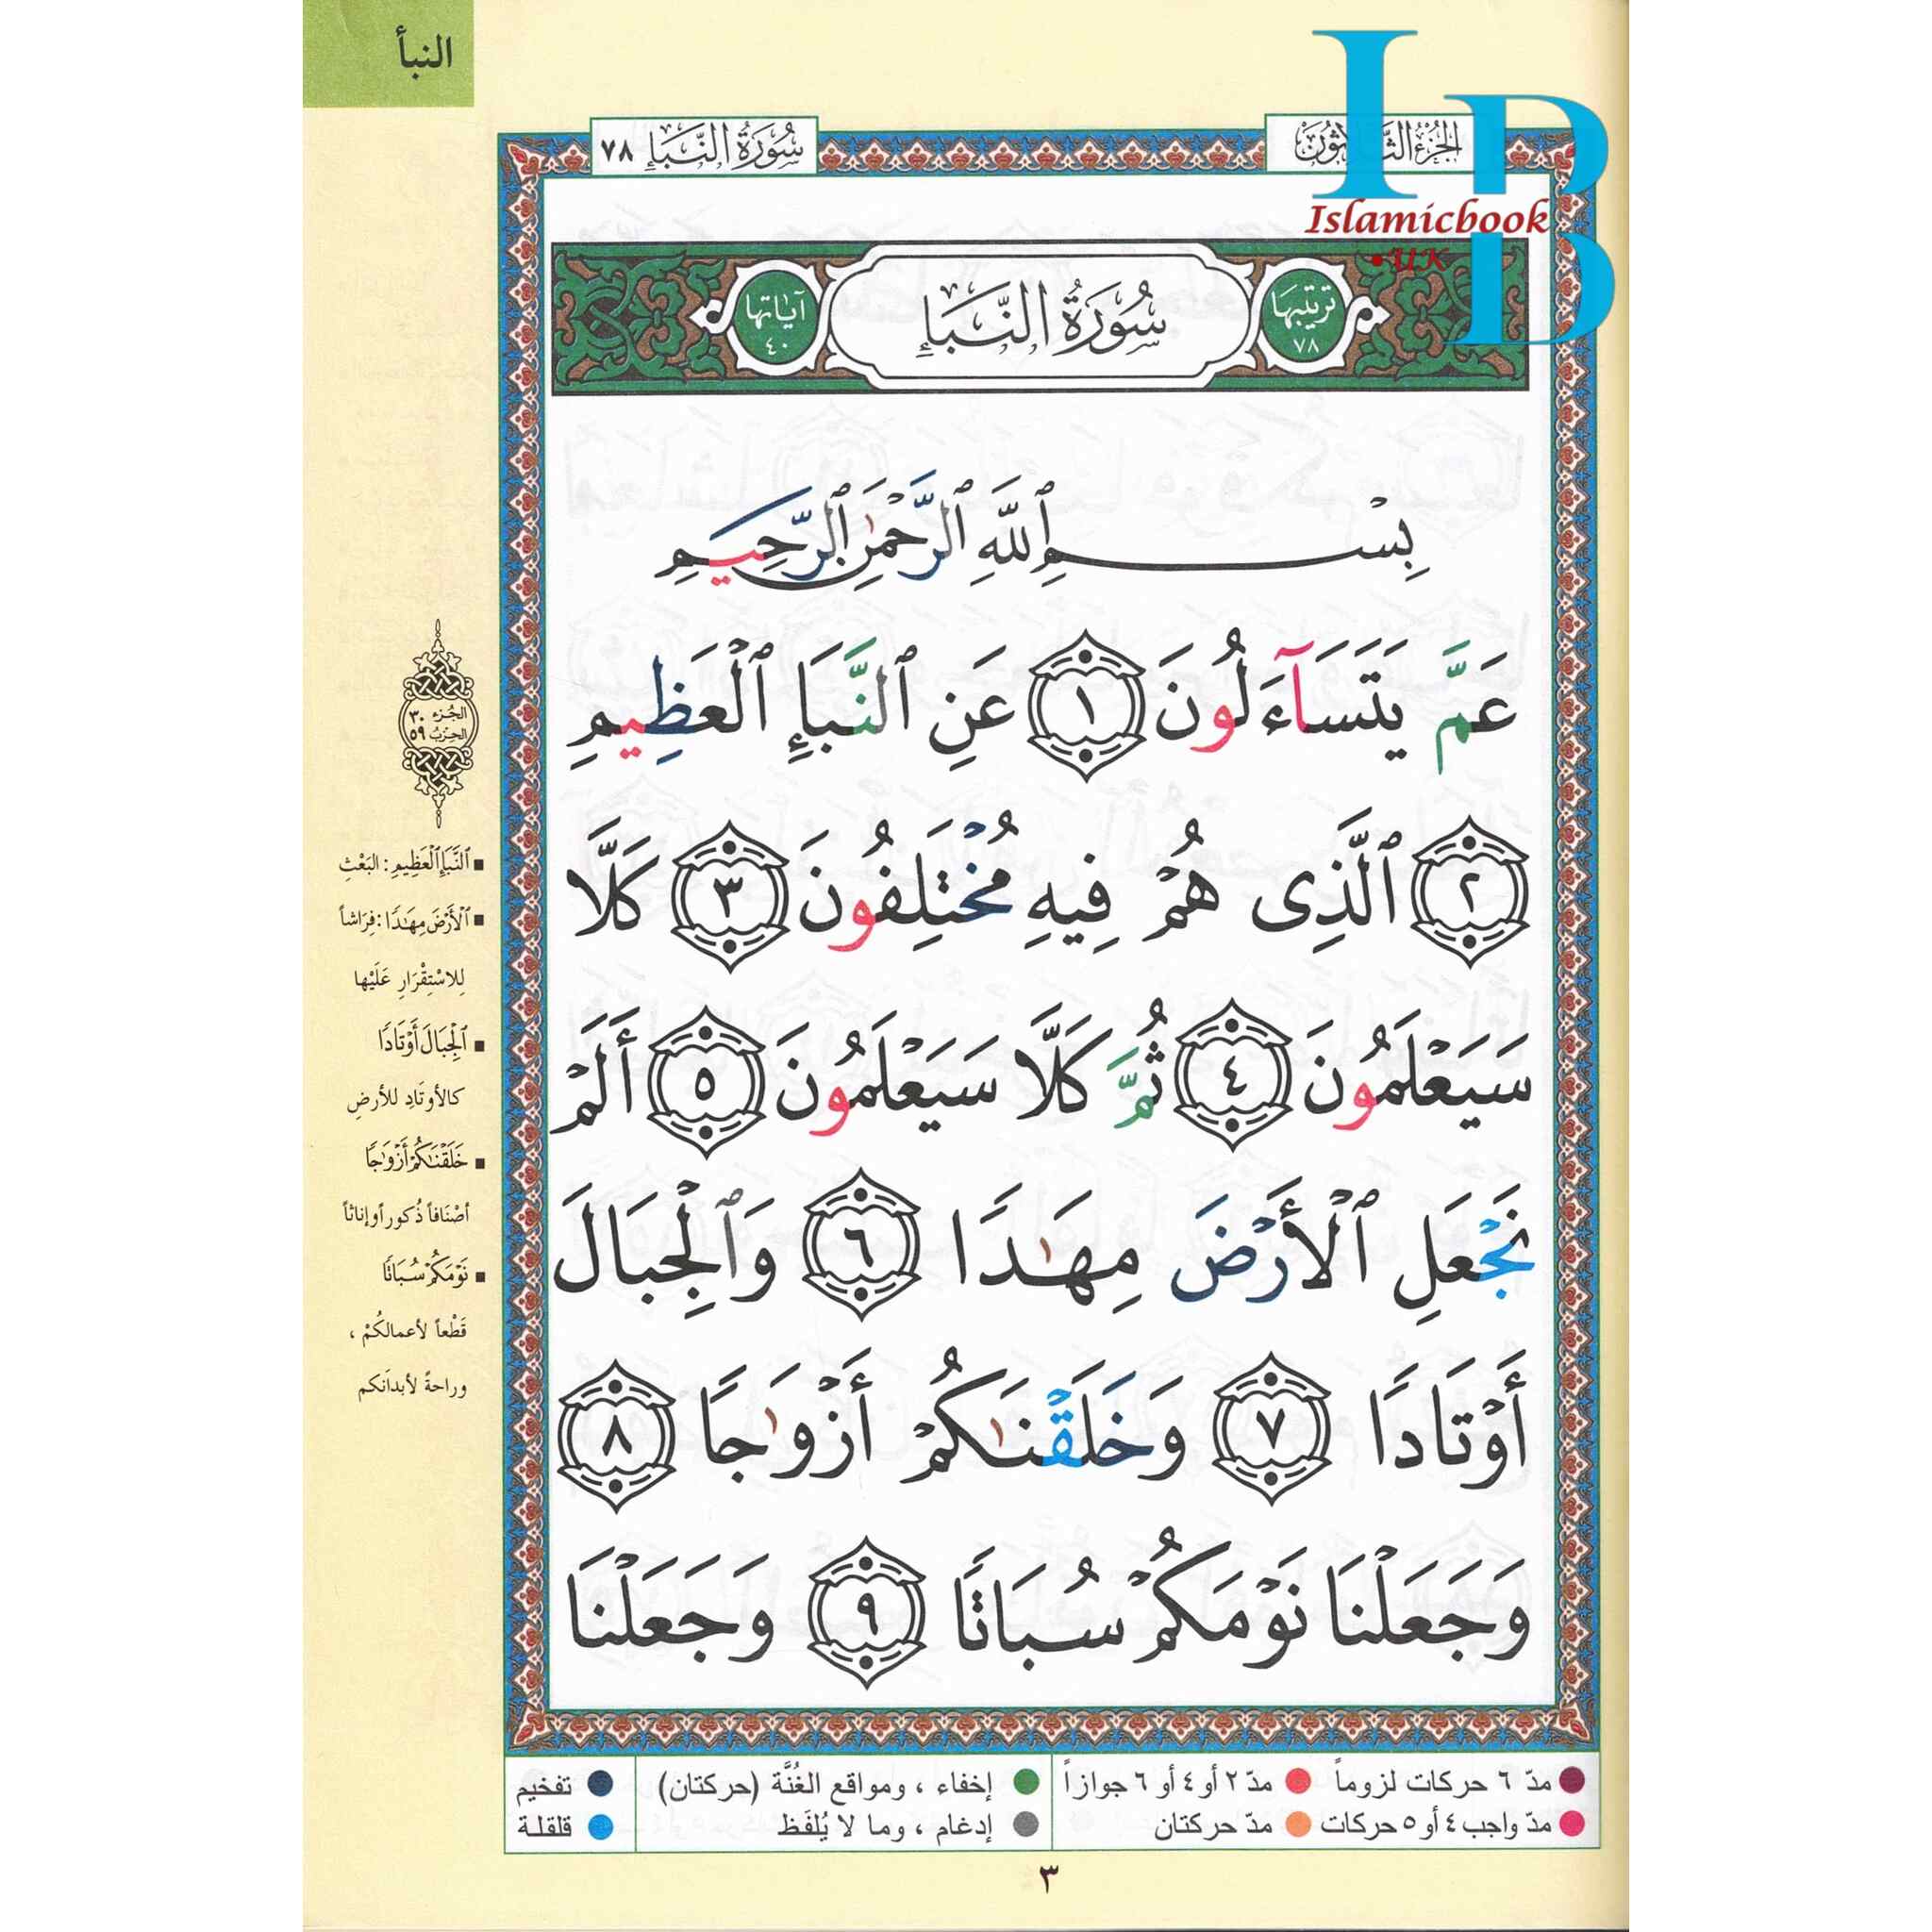 النبأ
الجُزْءُ الثَّلَاثُونَ
سُورَةُ النَّبَإِ ٧٨
Islamicbook
• UK
IB
ترتيبها ٧٨
سُورَةُ النَّبَإِ
آياتها ٤٠
بِسْمِ ٱللَّهِ ٱلرَّحْمَٰنِ ٱلرَّحِيمِ
عَمَّ يَتَسَآءَلُونَ ١ عَنِ ٱلنَّبَإِ ٱلْعَظِيمِ
٢ ٱلَّذِى هُمْ فِيهِ مُخْتَلِفُونَ ٣ كَلَّا
سَيَعْلَمُونَ ٤ ثُمَّ كَلَّا سَيَعْلَمُونَ ٥ أَلَمْ
نَجْعَلِ ٱلْأَرْضَ مِهَٰدًا ٦ وَٱلْجِبَالَ
أَوْتَادًا ٧ وَخَلَقْنَٰكُمْ أَزْوَٰجًا ٨
وَجَعَلْنَا نَوْمَكُمْ سُبَاتًا ٩ وَجَعَلْنَا
الجُزء ٣٠
الحِزب ٥٩
▪ ٱلنَّبَإِ ٱلْعَظِيمِ : البَعْثِ
▪ ٱلْأَرْضَ مِهَٰدًا : فِرَاشاً
لِلاسْتِقْرَارِ عَلَيْها
▪ ٱلْجِبَالَ أَوْتَادًا
كالأوتَادِ للأرضِ
▪ خَلَقْنَٰكُمْ أَزْوَٰجًا
أصْنَافاً ذُكوراً وإناثاً
▪ نَوْمَكُمْ سُبَاتًا
قَطْعاً لأعمالكُمْ ،
وراحةً لأبدَانكم
مدّ ٦ حركات لزوماً مدّ ٢ أو ٤ أو ٦ جوازاً إخفاء ، ومواقع الغُنَّة (حركتان) تفخيم
مدّ واجب ٤ أو ٥ حركات مدّ حركتان إدغام ، وما لا يُلفَظ قلقلة
٣